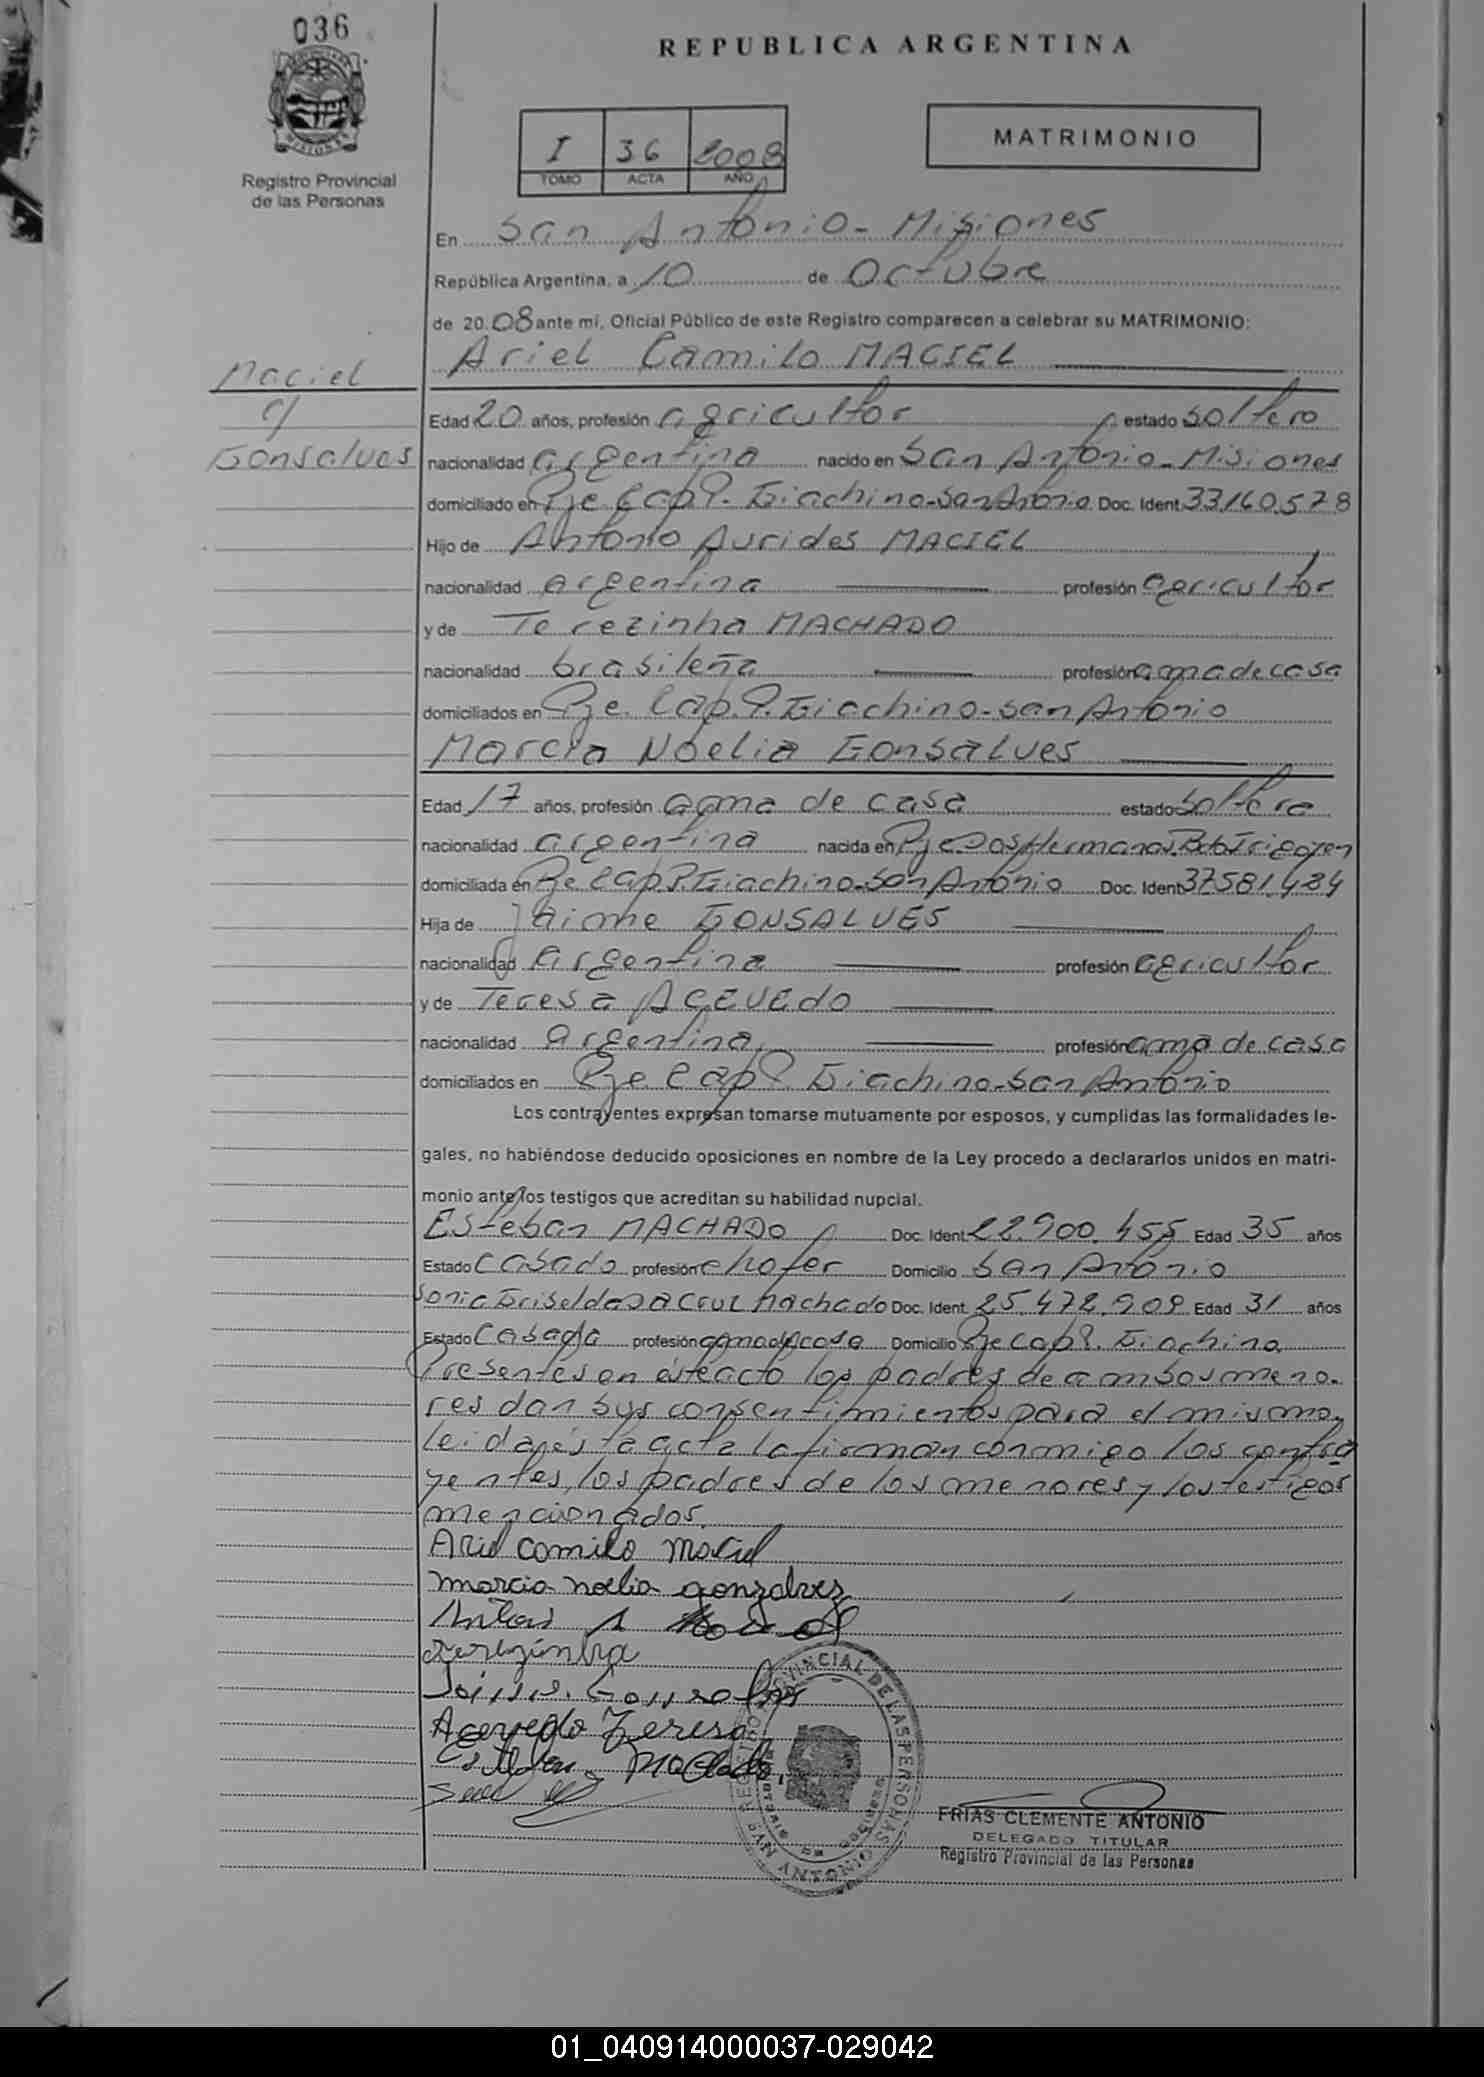 036
REPUBLICA ARGENTINA
I 36 2008
TOMO ACTA AÑO
MATRIMONIO
Registro Provincial
de las Personas
En San Antonio - Misiones
República Argentina, a 10 de Octubre
de 2008 ante mí, Oficial Público de este Registro comparecen a celebrar su MATRIMONIO:
Ariel Camilo MACIEL
Maciel
c/
Gonsalves
Edad 20 años, profesión agricultor estado soltero
nacionalidad argentina nacido en San Antonio - Misiones
domiciliado en Pje. Cap. P. Giachino - San Antonio Doc. Ident. 33.160.578
Hijo de Antonio Aurides MACIEL
nacionalidad argentina profesión agricultor
y de Terezinha MACHADO
nacionalidad brasileña profesión ama de casa
domiciliados en Pje. Cap. P. Giachino - San Antonio
Marcia Noelia Gonsalves
Edad 17 años, profesión ama de casa estado soltera
nacionalidad argentina nacida en Pje Dos Hermanas. Bdo Irigoyen
domiciliada en Pje Cap P. Giachino - San Antonio Doc. Ident. 37.581.484
Hija de Jaime GONSALVES
nacionalidad argentina profesión agricultor
y de Teresa ACEVEDO
nacionalidad argentina profesión ama de casa
domiciliados en Pje. Cap P. Giachino - San Antonio
Los contrayentes expresan tomarse mutuamente por esposos, y cumplidas las formalidades le-
gales, no habiéndose deducido oposiciones en nombre de la Ley procedo a declararlos unidos en matri-
monio ante los testigos que acreditan su habilidad nupcial.
Esteban MACHADO Doc. Ident. 22.900.455 Edad 35 años
Estado Casado profesión chofer Domicilio San Antonio
Sonia Griselda DA CRUZ Machado Doc. Ident. 25.472.909 Edad 31 años
Estado Casada profesión ama de casa Domicilio Pje Cap P. Giachino
Presentes en éste acto los padres de ambos meno-
res dan sus consentimientos para el mismo,
leida ésta acta la firman conmigo los contra
yentes, los padres de los menores y los testigos
mencionados.
Ariel Camilo Maciel
marcia noelia gonzalvez
Terezinha
Acevedo Teresa
Esteban Machado
REGISTRO PROVINCIAL DE LAS PERSONAS
SAN ANTONIO
FRIAS CLEMENTE ANTONIO
DELEGADO TITULAR
Registro Provincial de las Personas
01_040914000037-029042